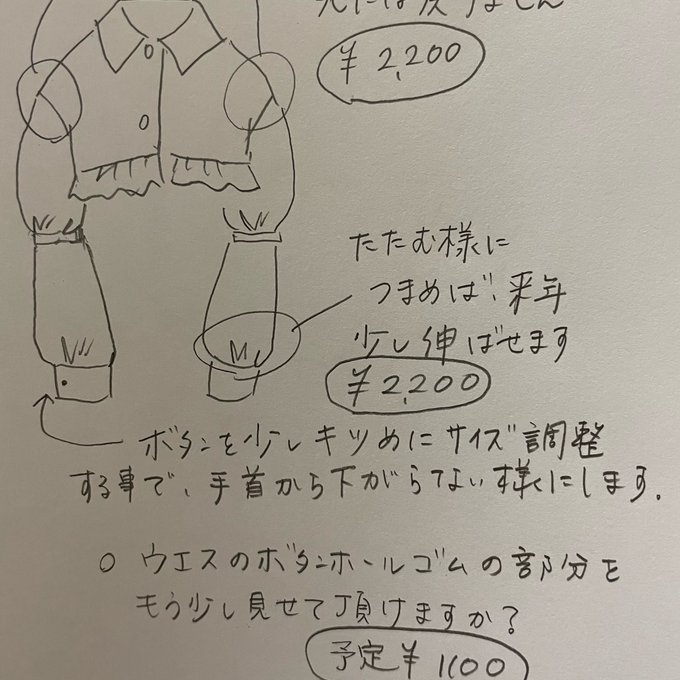 元には戻りません
¥2,200
たたむ様に
つまめば、来年
少し伸ばせます
¥2,200
ボタンを少しキツめにサイズ調整
する事で、手首から下がらない様にします.
○ ウエスのボタンホールゴムの部分を
もう少し見せて頂けますか?
予定¥1100